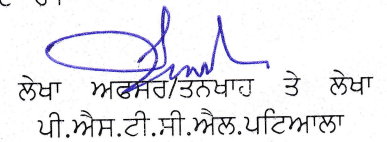 ਲੇਖਾ ਅਫਸਰ/ਤਨਖਾਹ ਤੇ ਲੇਖਾ
ਪੀ.ਐਸ.ਟੀ.ਸੀ.ਐਲ.ਪਟਿਆਲਾ